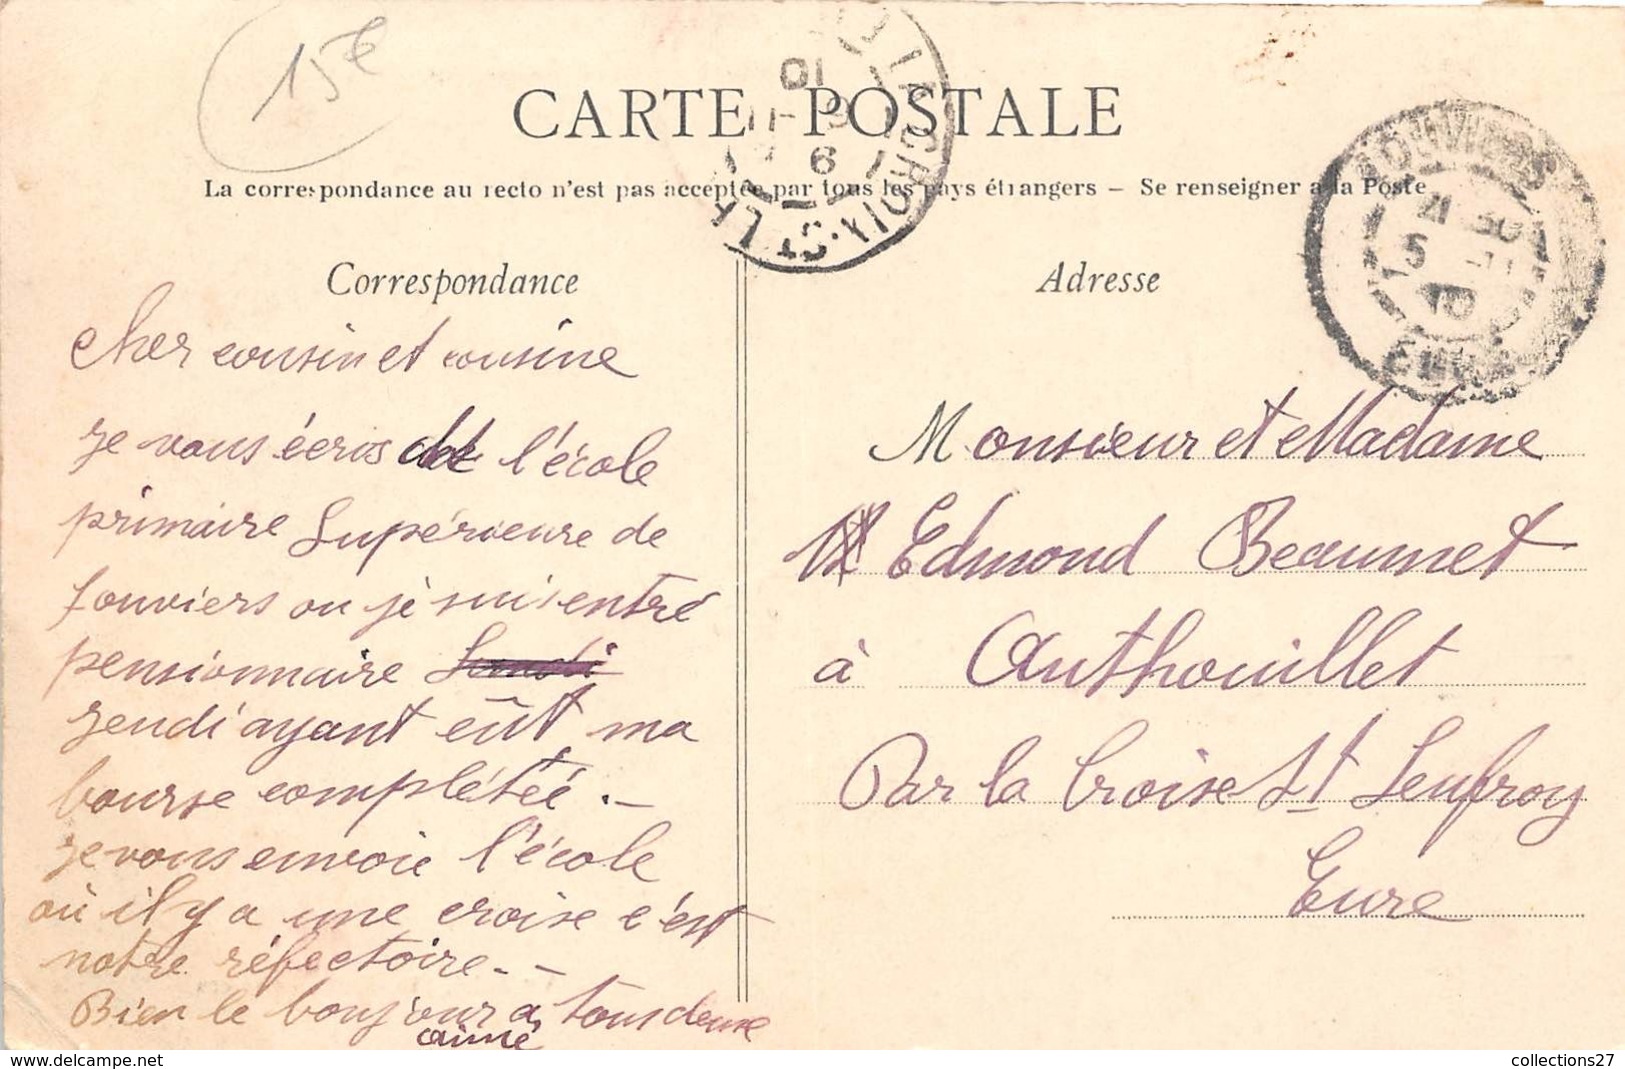 15€
CARTE POSTALE
La correspondance au recto n'est pas acceptée par tous les pays étrangers – Se renseigner à la Poste
LA CROIX-ST-L
10
6
LOUVIERS
5
10
EURE
Correspondance
cher cousin et cousine
je vous écris de l'école
primaire Supérieure de
Louviers ou je suis entré
pensionnaire Lundi
jeudi ayant eût ma
bourse complétée .–
je vous envoie l'école
où il y a une croise c'est
notre réfectoire.–
Bien le bonjour à tous deux
aimé
Adresse
Monsieur et Madame
Edmond Beaumet
à Authouillet
Par la Croise St Leufroy
Eure
collections27